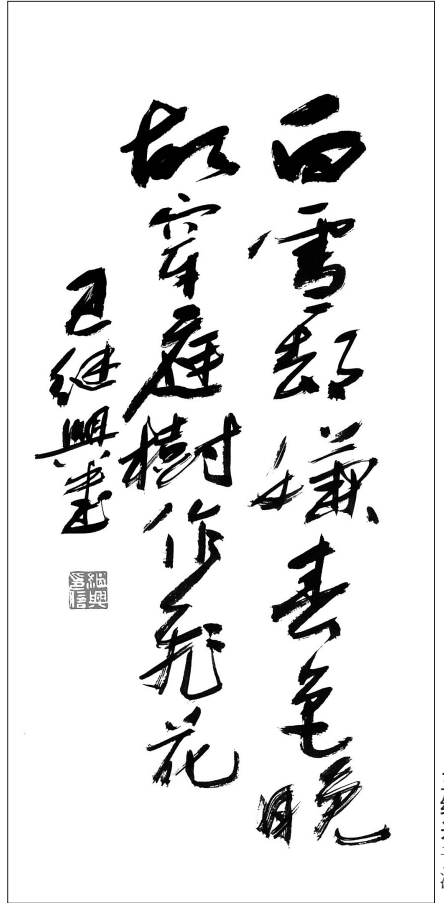 白雪却嫌春色晚
故穿庭樹作飛花
王继興書
继興印信